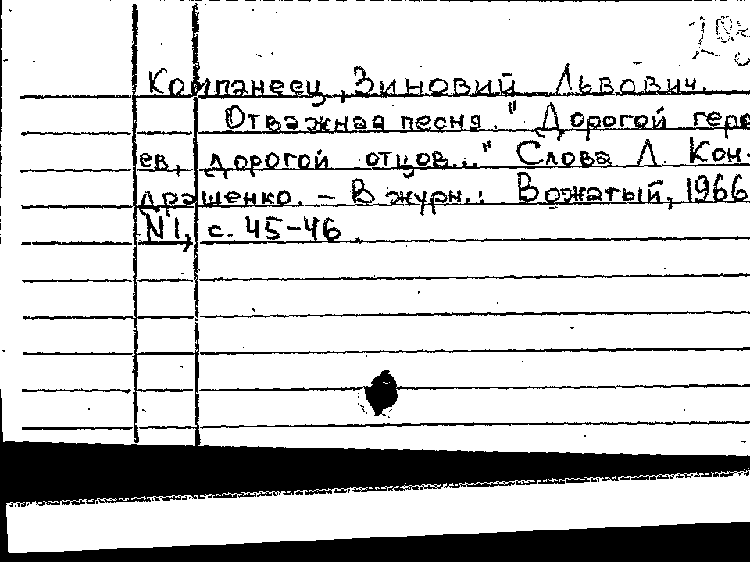 Компанеец, Зиновий Львович.
Отважная песня. "Дорогой геро
ев, дорогой отцов..." Слова Л. Кон-
драшенко. – В журн.: Вожатый, 1966
N1, с. 45-46.